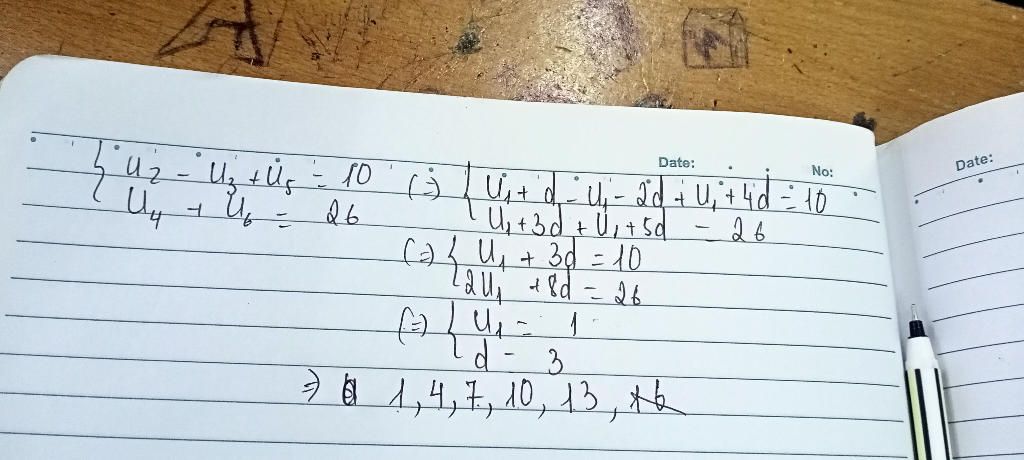 Date: No:
Date:
{ U₂ - U₃ + U₅ = 10 (=) { U₁ + d - U₁ - 2d + U₁ + 4d = 10
U₄ + U₆ = 26 U₁ + 3d + U₁ + 5d = 26
(=) { U₁ + 3d = 10
2U₁ + 8d = 26
(=) { U₁ = 1
d = 3
=> 1, 4, 7, 10, 13,